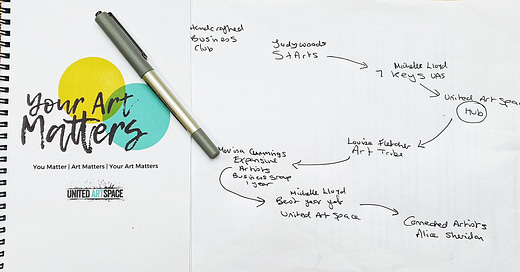 Your Art
Matters
You Matter | Art Matters | Your Art Matters
UNITED ART SPACE
Handcrafted
Business
Club
Judy Woods
StArts
Michelle Lloyd
7 Keys UAS
United Art Space
Hub
Louise Fletcher
Art Tribe
Cummings
Expansive
Artists
Business Group
1 year
Michelle Lloyd
Best year yet
United Art Space
Connected Artists
Alice Sheridan